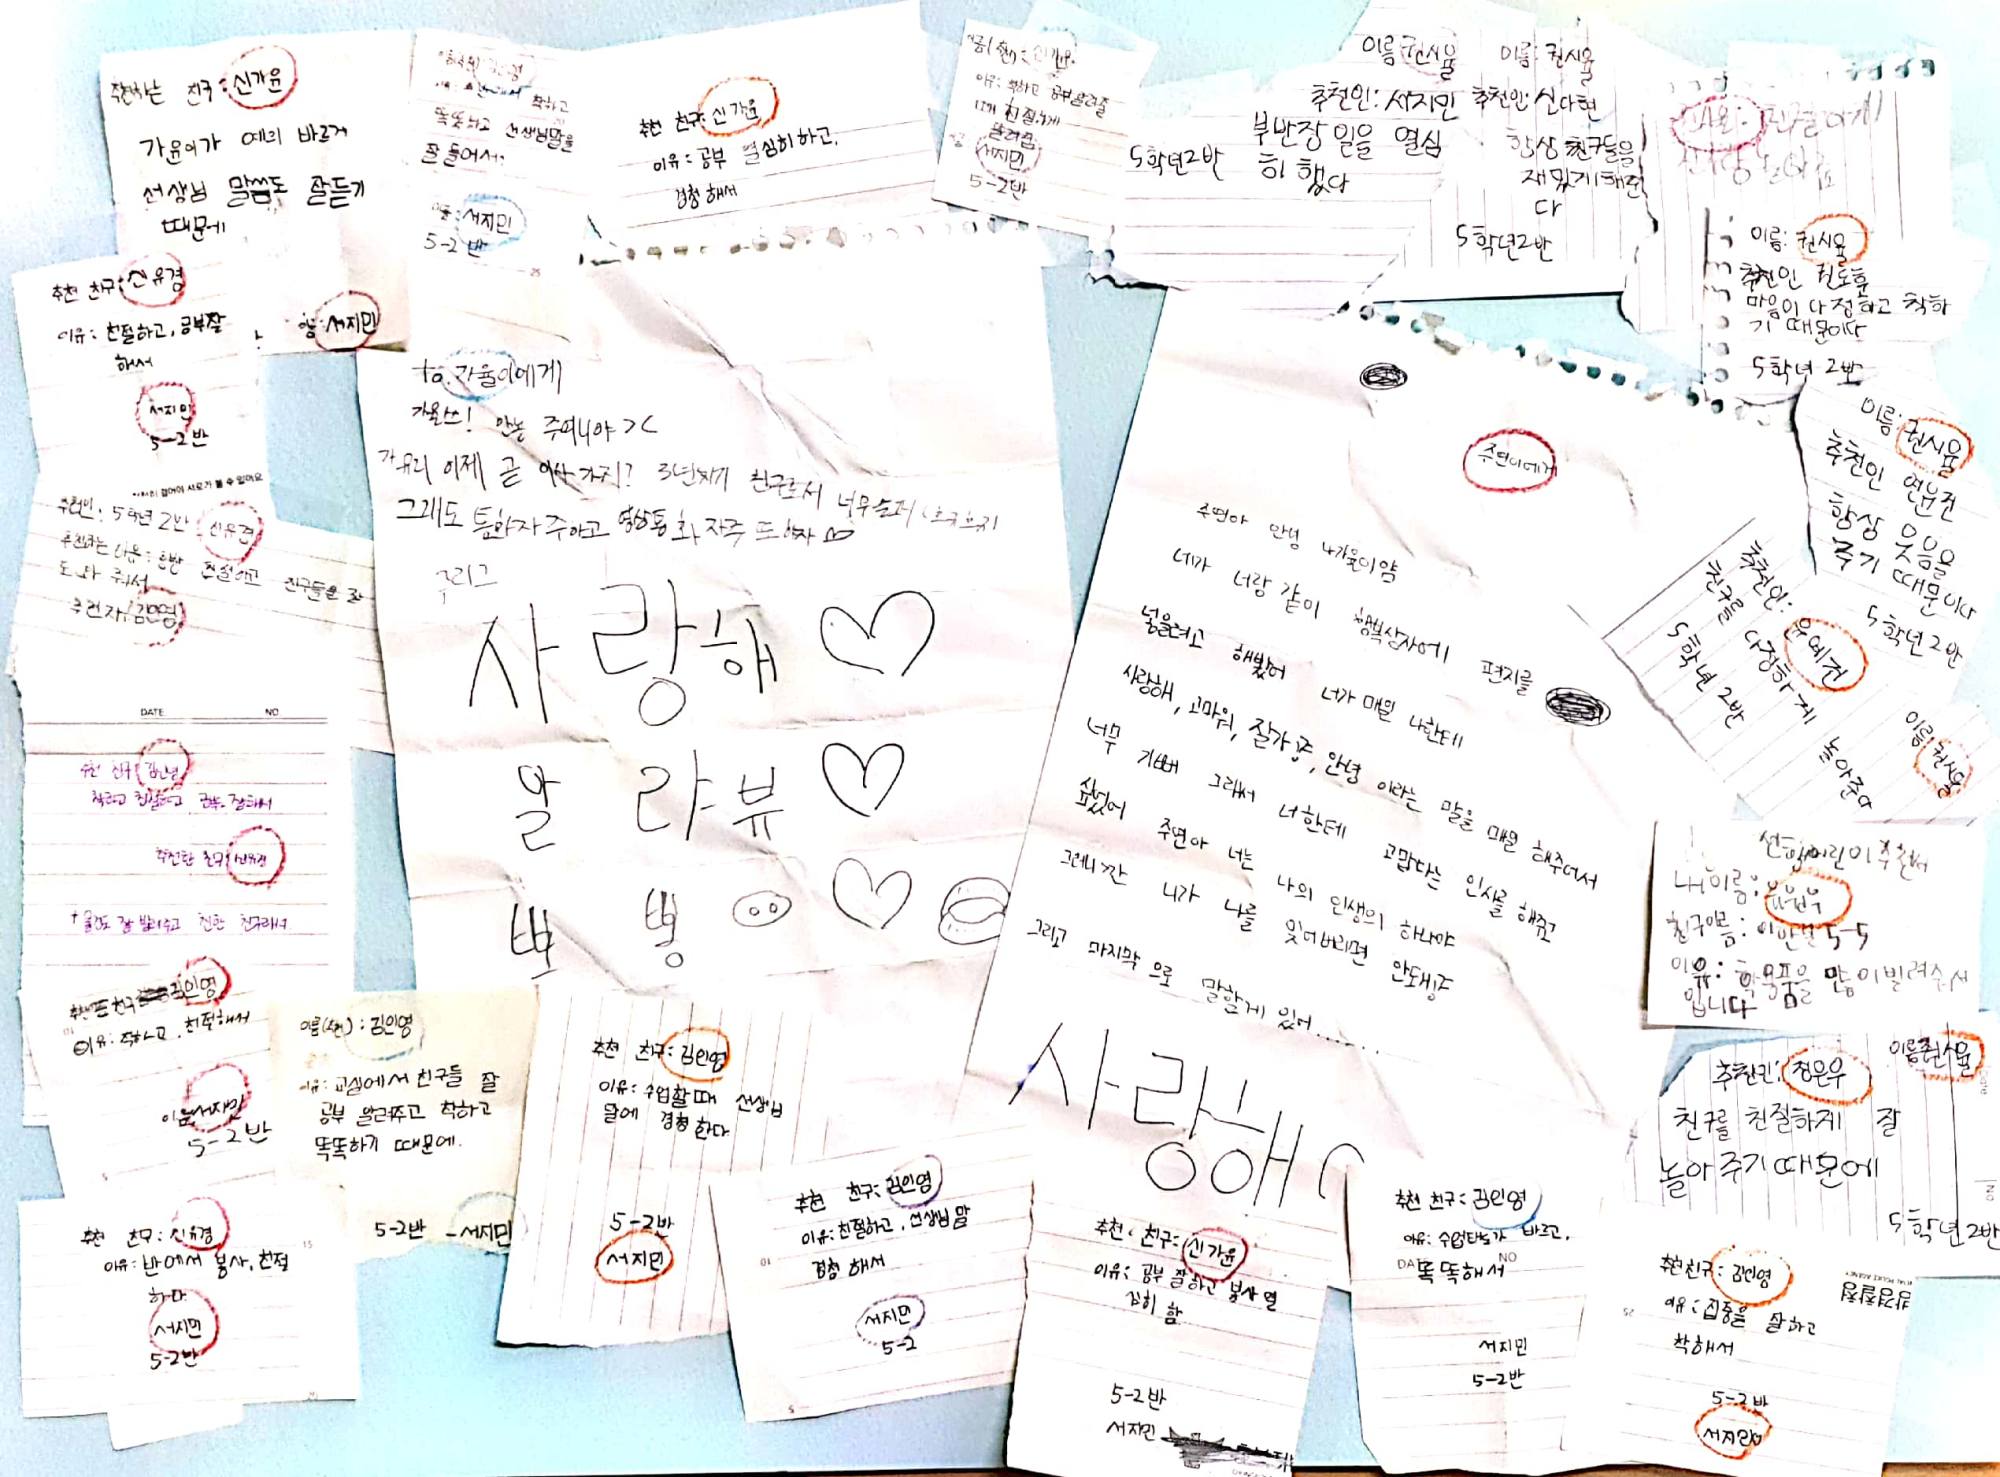 추천하는 친구: 신가윤
가윤이가 예의 바르게
선생님 말씀도 잘듣기
때문에
서지민
착하고
똑똑하고 선생님말을
잘 들어서.
이름: 서지민
5-2반
추천 친구: 신가윤
이유: 공부 열심히하고,
경청해서
이유: 착하고 공부잘하고
친절하게
알려줌
서지민
5-2반
이름: 권시율
추천인: 서지민
부반장 일을 열심
히 했다
5학년2반
이름: 권시율
추천인: 신다현
항상 친구들을
재밌게 해준
다
5학년2반
친구들에게
이름: 권시율
추천인 권도훈
마음이 다정하고 착하
기 때문이다
5학년 2반
이름: 권시율
추천인 연유진
항상 웃음을
주기 때문이다
5학년2반
이름: 권시율
추천인: 유예건
친구를 다정하게 놀아준다
5학년 2반
선행어린이추천서
내이름: 유원우
친구이름: 5-5
이유: 학용품을 많이빌려줘서
입니다
이름: 권시율
추천인: 정은우
친구를 친절하게 잘
놀아 주기때문에
5학년2반
추천 친구: 신유경
이유: 친절하고, 공부잘
해서
서지민
5-2반
추천인: 5학년 2반 신유경
추천하는 이유: 친절하고 친구들을 잘
도와 줘서
추천자: 김인영
DATE NO
추천 친구: 김인영
착하고 친절하고 공부 잘해서
추천한 친구: 신유경
+ 물건도 잘 빌려주고 친한 친구라서
추천 친구: 김인영
이유: 착하고, 친절해서
이름: 서지민
5-2반
이름(추천): 김인영
이유: 교실에서 친구들 잘
공부 알려주고 착하고
똑똑하기 때문에.
5-2반 -서지민
추천 친구: 신유경
이유: 반에서 봉사, 친절
하다
서지민
5-2반
to. 가율이에게
가율쓰! 안뇽 주여니야 ><
가유리 이제 곧 이사 가지? 3년차기 친구로서 너무슬퍼
그래도 통화자주하고 영상통화 자주 뜨하자 ♡
그리고
사랑해 ♡
알라뷰 ♡
뽀뽕 ♡
주연이에게
주연아 안녕 나가율이얌
내가 너랑 같이 행복상자에 편지를
넣을려고 해봤어 너가 매일 나한테
사랑해, 고마워, 잘가, 안녕 이라는 말을 매일 해주어서
너무 기뻐 그래서 너한테 고맙다는 인사를 해주고
싶었어 주연아 너는 나의 인생의 하나야
그러니깐 니가 나를 잊어버리면 안돼
그리고 마지막 으로 말할게 있어......
사랑해
추천 친구: 김인영
이유: 수업할때 선생님
말에 경청한다
5-2반
서지민
추천 친구: 김인영
이유: 친절하고, 선생님말
경청 해서
서지민
5-2
추천 친구: 신가윤
이유: 공부 잘하고 봉사 열
심히 함
5-2반
서지민
추천 친구: 김인영
이유: 수업태도가 바르고,
똑똑해서
서지민
5-2반
추천친구: 김인영
이유: 집중을 잘하고
착해서
5-2반
서지민